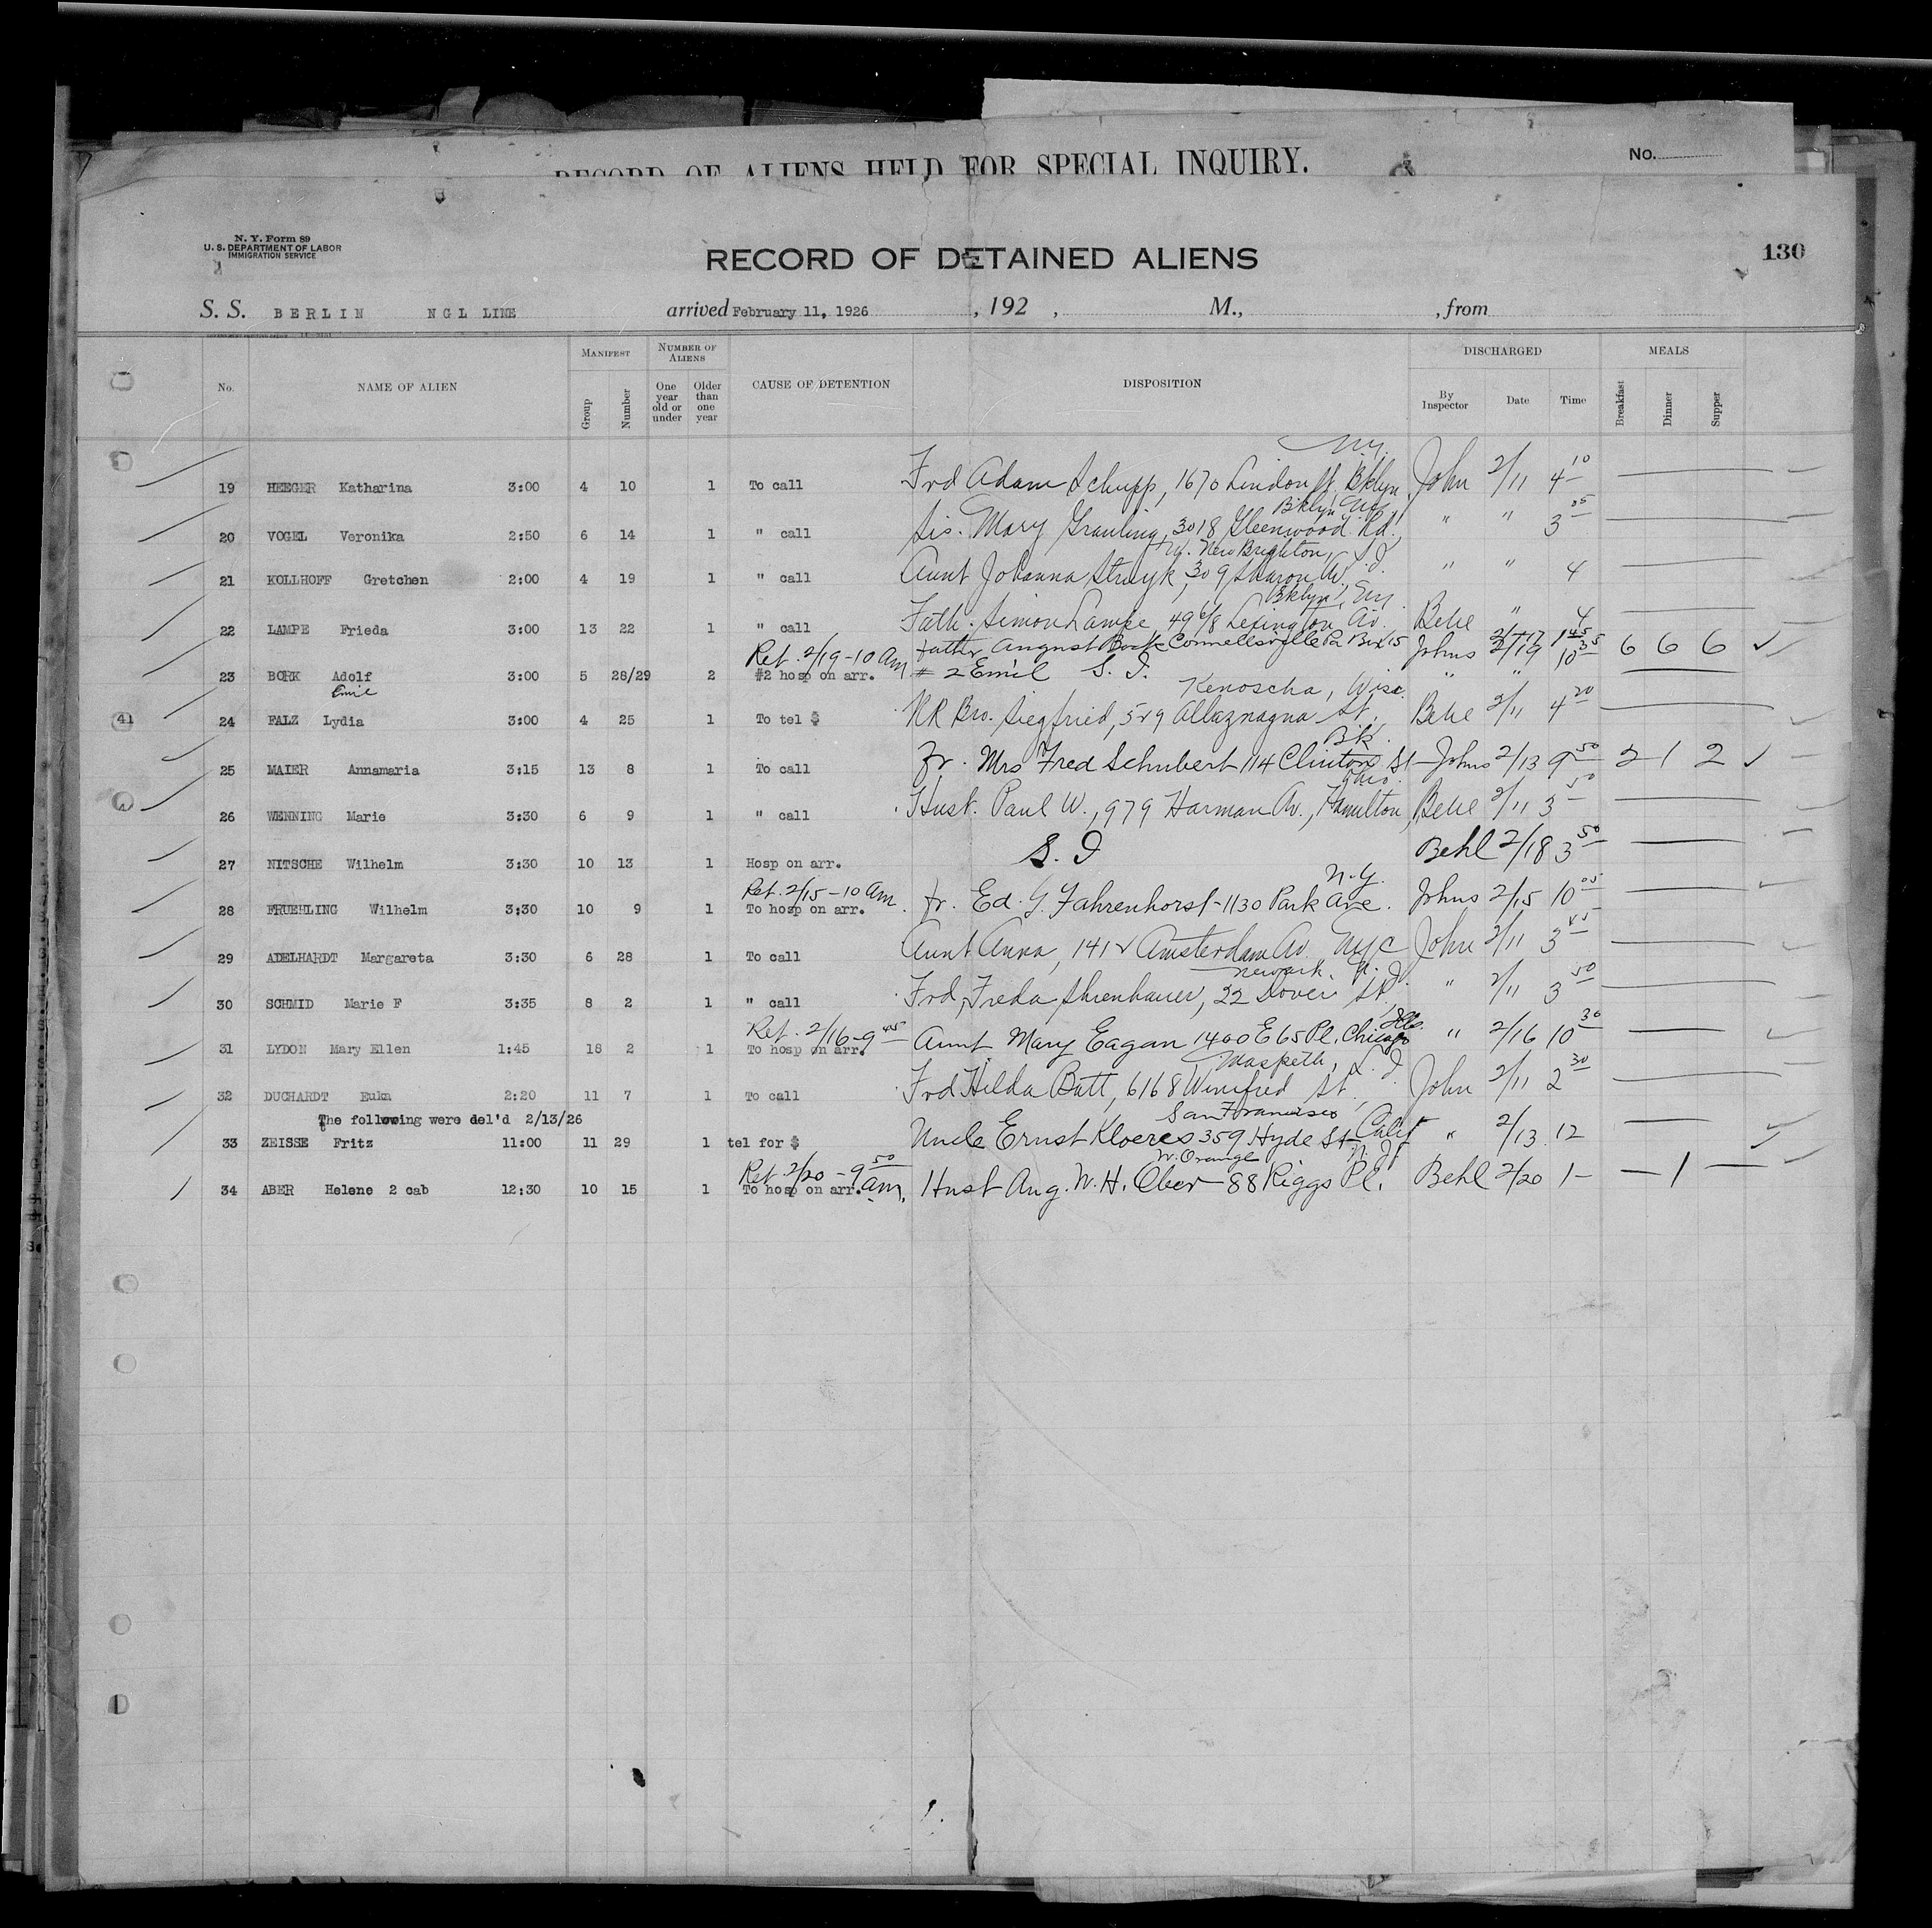 RECORD OF ALIENS HELD FOR SPECIAL INQUIRY.
No.
N. Y. Form 89
U. S. DEPARTMENT OF LABOR
IMMIGRATION SERVICE
RECORD OF DETAINED ALIENS
130
S. S. BERLIN NGL LINE arrived February 11, 1926 , 192 , M., , from
No. NAME OF ALIEN MANIFEST Group Number NUMBER OF ALIENS One year old or under Older than one year CAUSE OF DETENTION DISPOSITION DISCHARGED By Inspector Date Time MEALS Breakfast Dinner Supper
N.Y.
19 HEEGER Katharina 3:00 4 10 1 To call Frd Adam Schupp, 1670 Lindon St, Bklyn John 2/11 4 10
Bklyn N.Y.
20 VOGEL Veronika 2:50 6 14 1 " call Sis. Mary Grauling, 3018 Gleenwood Rd., " " 3 05
N.Y. New Brighton, S.I.
21 KOLLHOFF Gretchen 2:00 4 19 1 " call Aunt Johanna Struyk, 309 Sharon Av., " " 4
Bklyn, N.Y.
22 LAMPE Frieda 3:00 13 22 1 " call Fath. Simon Lampe, Lexington Av. Behe " 4
Ret. 2/19-10 Am Father August Bork Connellsville Pa Box 15 Johns 2/17 1 45
23 BORK Adolf 3:00 5 28/29 2 #2 hosp on arr. # 2 Emil S. I. 2/19 10 35 6 6 6
Emil
Kenoscha, Wisc.
41 24 FALZ Lydia 3:00 4 25 1 To tel $ Bro. Siegfried, 529 St., Behe 2/11 4 20
Bk.
25 MAIER Annamaria 3:15 13 8 1 To call Fr. Mrs Fred Schubert 114 Clinton St Johns 2/13 9 50 2 1 2
Ohio
26 WENNING Marie 3:30 6 9 1 " call Husb. Paul W., 979 Harman Av., Hamilton, Behe 2/11 3 50
27 NITSCHE Wilhelm 3:30 10 13 1 Hosp on arr. S. I Behl 2/18 3 50
Ret. 2/15-10 Am N.Y.
28 FRUEHLING Wilhelm 3:30 10 9 1 To hosp on arr. Fr. Ed. G. Fahrenhorst-1130 Park Ave. Johns 2/15 10 05
29 ADELHARDT Margareta 3:30 6 28 1 To call Aunt Anna, 1412 Amsterdam Av. NYC John 2/11 3 45
Newark, N.J.
30 SCHMID Marie F 3:35 8 2 1 " call Frd, Freda Ahrenhauer, 22 Dover St., " 2/11 3 50
Ret. 2/16-9 45 Ills.
31 LYDON Mary Ellen 1:45 18 2 1 To hosp on arr. Aunt Mary Eagan 1400 E 65 Pl. Chicago " 2/16 10 30
Maspeth, L. I.
32 DUCHARDT Eukn 2:20 11 7 1 To call Frd Hilda Batt, 6168 Winifred St., John 2/11 2 30
The following were del'd 2/13/26 San Francisco
33 ZEISSE Fritz 11:00 11 29 1 tel for $ Uncle Ernst Kloeres 359 Hyde St Calif " 2/13 12
Ret. 2/20-9 50 am. W. Orange N. J.
34 ABER Helene 2 cab 12:30 10 15 1 To hosp on arr. Husb Aug. W. H. Ober-88 Riggs Pl. Behl 2/20 1 1